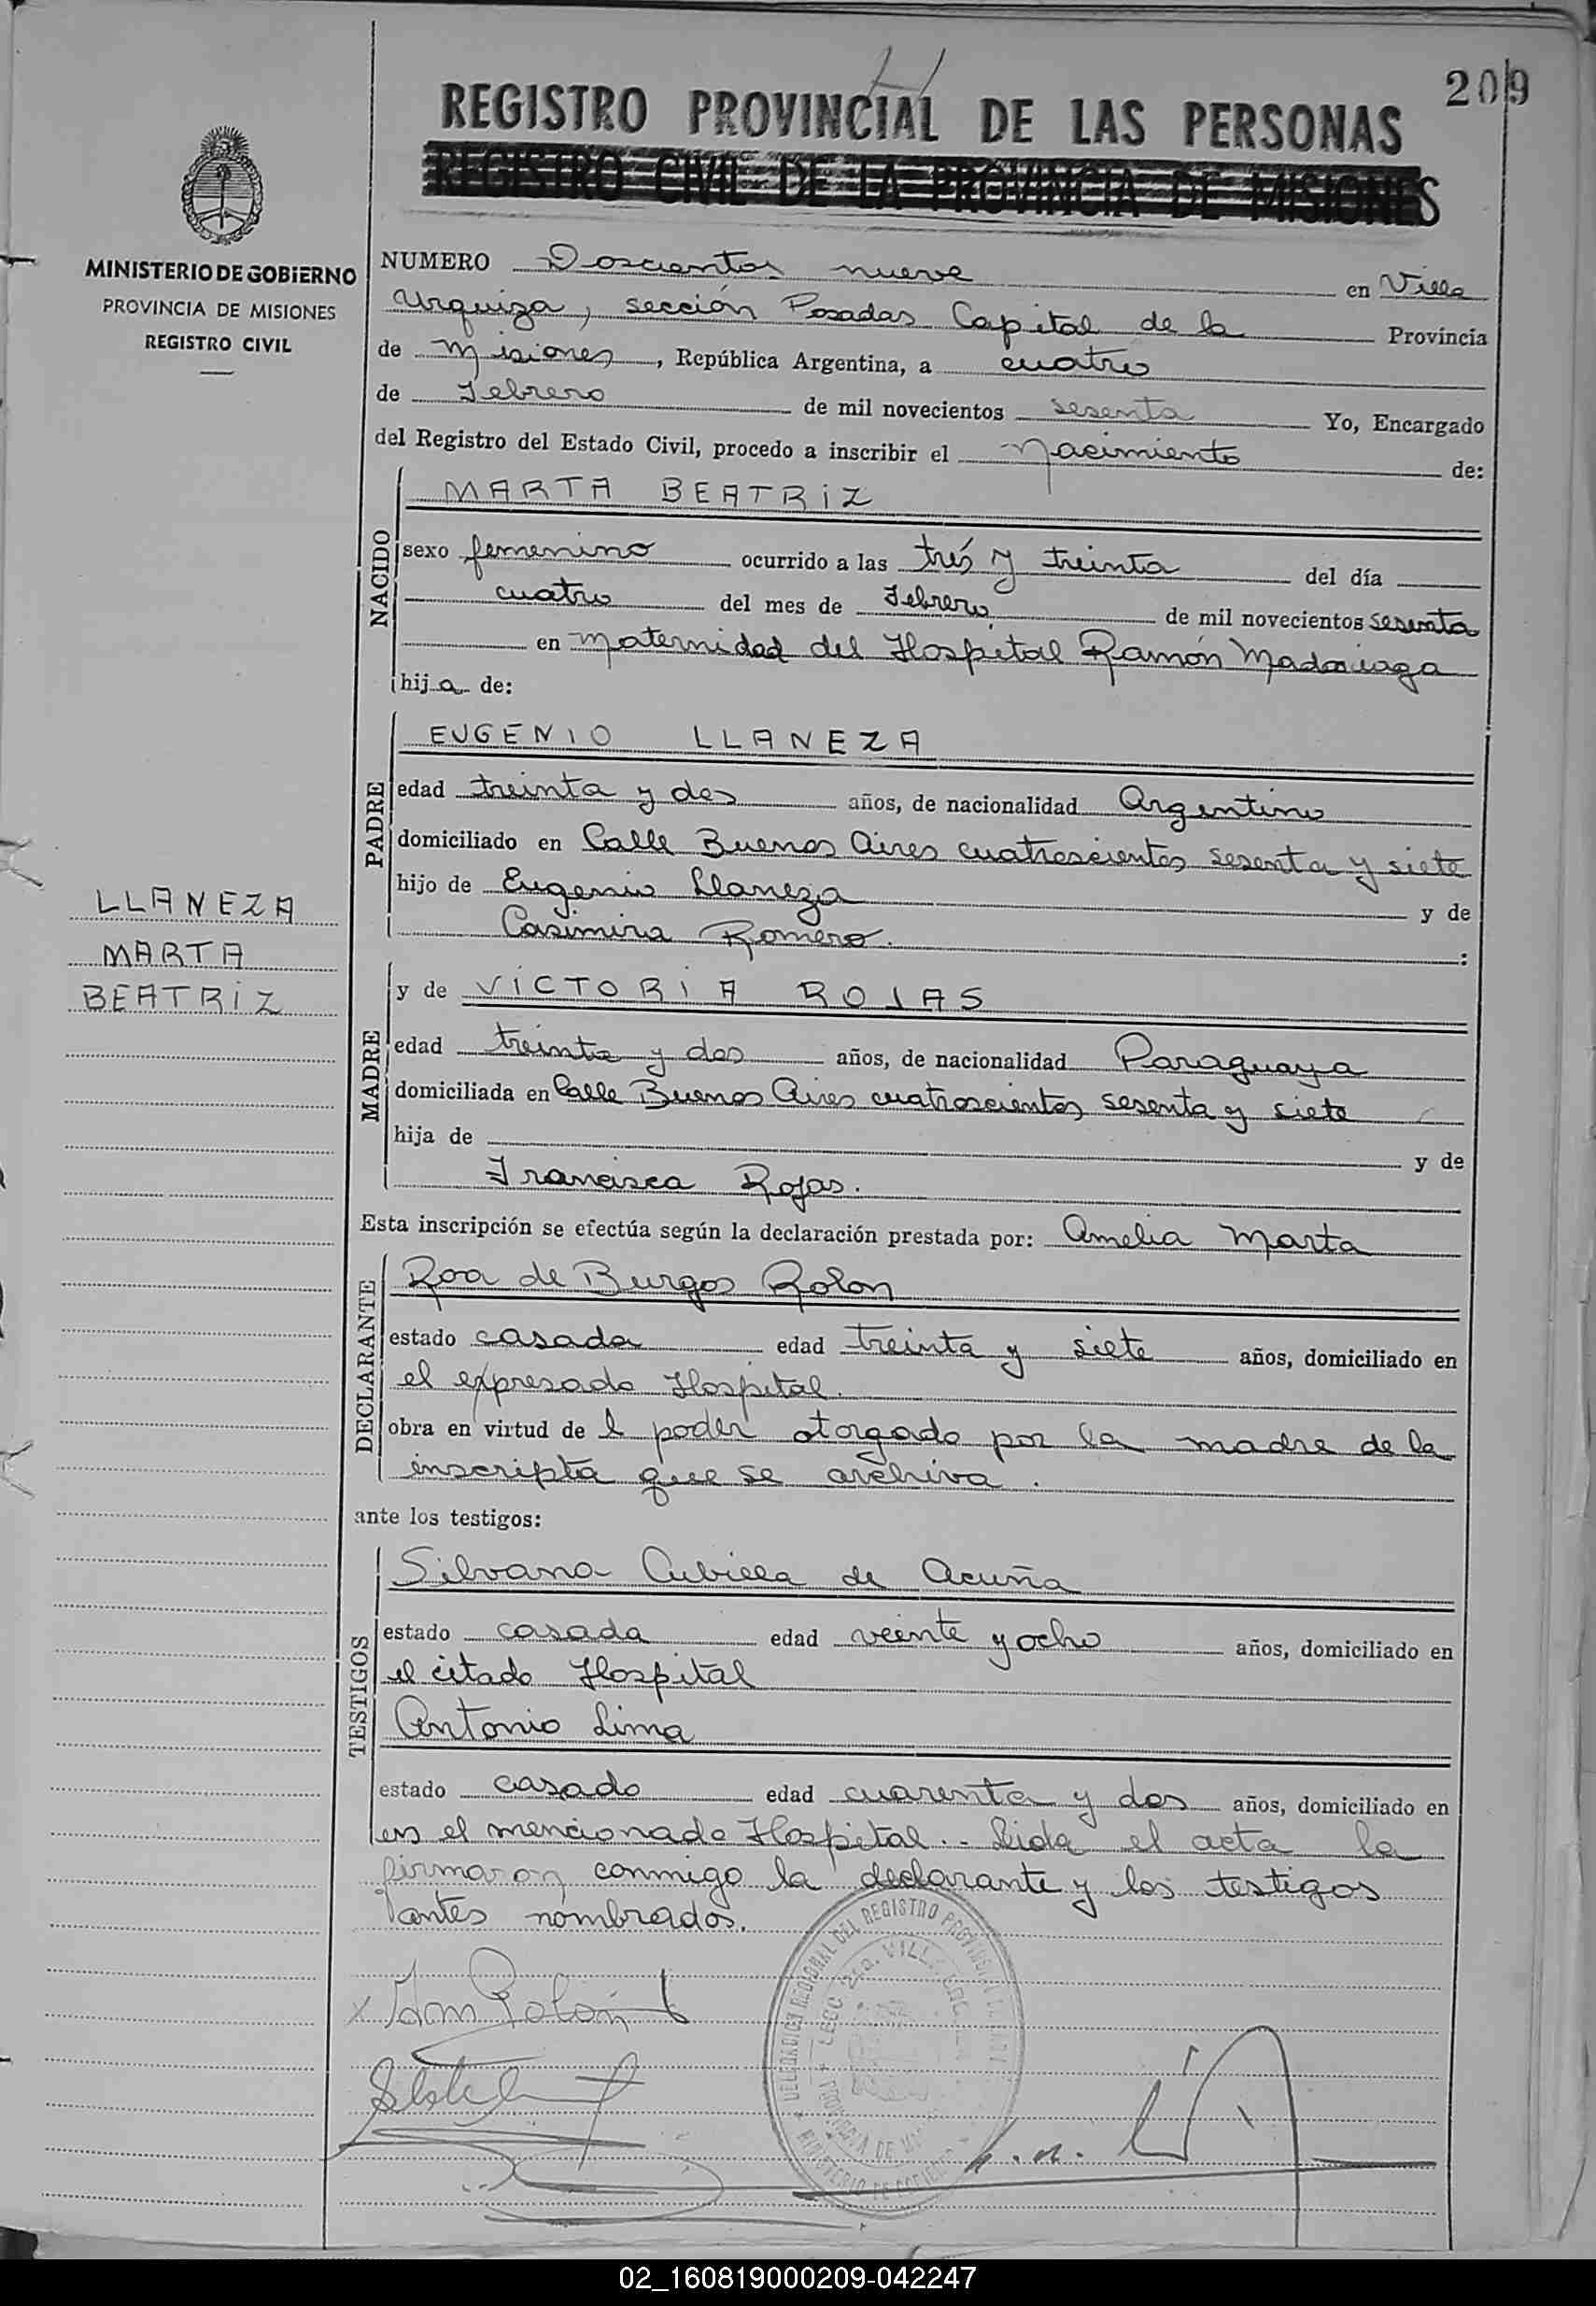 209
REGISTRO PROVINCIAL DE LAS PERSONAS
REGISTRO CIVIL DE LA PROVINCIA DE MISIONES
MINISTERIO DE GOBIERNO
PROVINCIA DE MISIONES
REGISTRO CIVIL
NUMERO Doscientos nueve en Villa
Urquiza, sección Posadas Capital de la Provincia
de Misiones, República Argentina, a cuatro
de Febrero de mil novecientos sesenta Yo, Encargado
del Registro del Estado Civil, procedo a inscribir el Nacimiento de:
NACIDO
MARTA BEATRIZ
sexo femenino ocurrido a las trés y treinta del día
cuatro del mes de Febrero de mil novecientos sesenta
en Maternidad del Hospital Ramón Madariaga
hija de:
PADRE
EUGENIO LLANEZA
edad treinta y dos años, de nacionalidad Argentino
domiciliado en Calle Buenos Aires cuatroscientos sesenta y siete
hijo de Eugenio Llaneza y de
Casimira Romero. :
LLANEZA
MARTA
BEATRIZ
MADRE
y de VICTORIA ROJAS
edad treinta y dos años, de nacionalidad Paraguaya
domiciliada en Calle Buenos Aires cuatroscientos sesenta y siete
hija de y de
Francisca Rojas.
Esta inscripción se efectúa según la declaración prestada por: Amelia Marta
DECLARANTE
Roa de Burgos Rolon
estado casada edad treinta y siete años, domiciliado en
el expresado Hospital.
obra en virtud de l poder otorgado por la madre de la
inscripta que se archiva.
ante los testigos:
TESTIGOS
Silvana Cubilla de Acuña
estado casada edad veinte y ocho años, domiciliado en
el citado Hospital
Antonio Lima
estado casado edad cuarenta y dos años, domiciliado en
en el mencionado Hospital.. Leida el acta la
firmaron conmigo la declarante y los testigos
antes nombrados.
DELEGACION REGIONAL DEL REGISTRO PROVINCIAL
MINISTERIO DE GOBIERNO
PROVINCIA DE
02_160819000209-042247